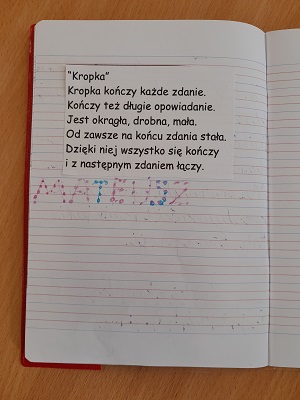 “Kropka”
Kropka kończy każde zdanie.
Kończy też długie opowiadanie.
Jest okrągła, drobna, mała.
Od zawsze na końcu zdania stała.
Dzięki niej wszystko się kończy
i z następnym zdaniem łączy.